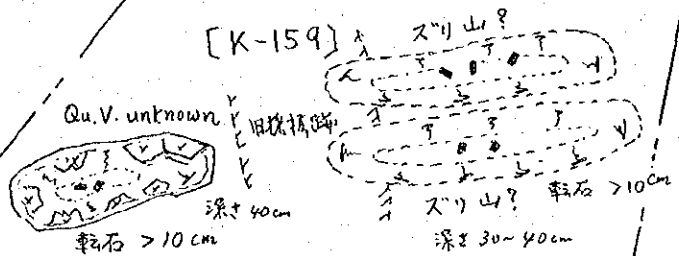 [K-159]
ズリ山?
Qu.V. unknown
旧探鉱跡
深さ 40cm
転石 >10cm
ズリ山?
転石 >10cm
深さ 30~40cm